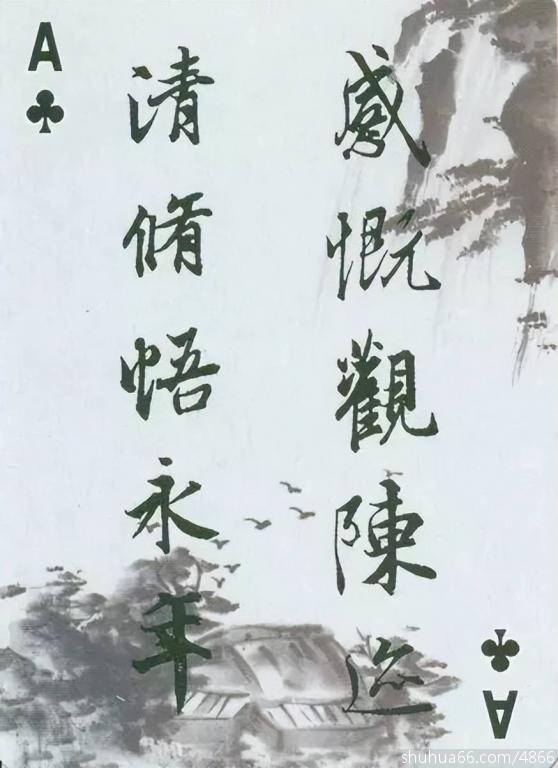 A
感慨觀陳迹
清脩悟永年
A
shuhua66.com/4866